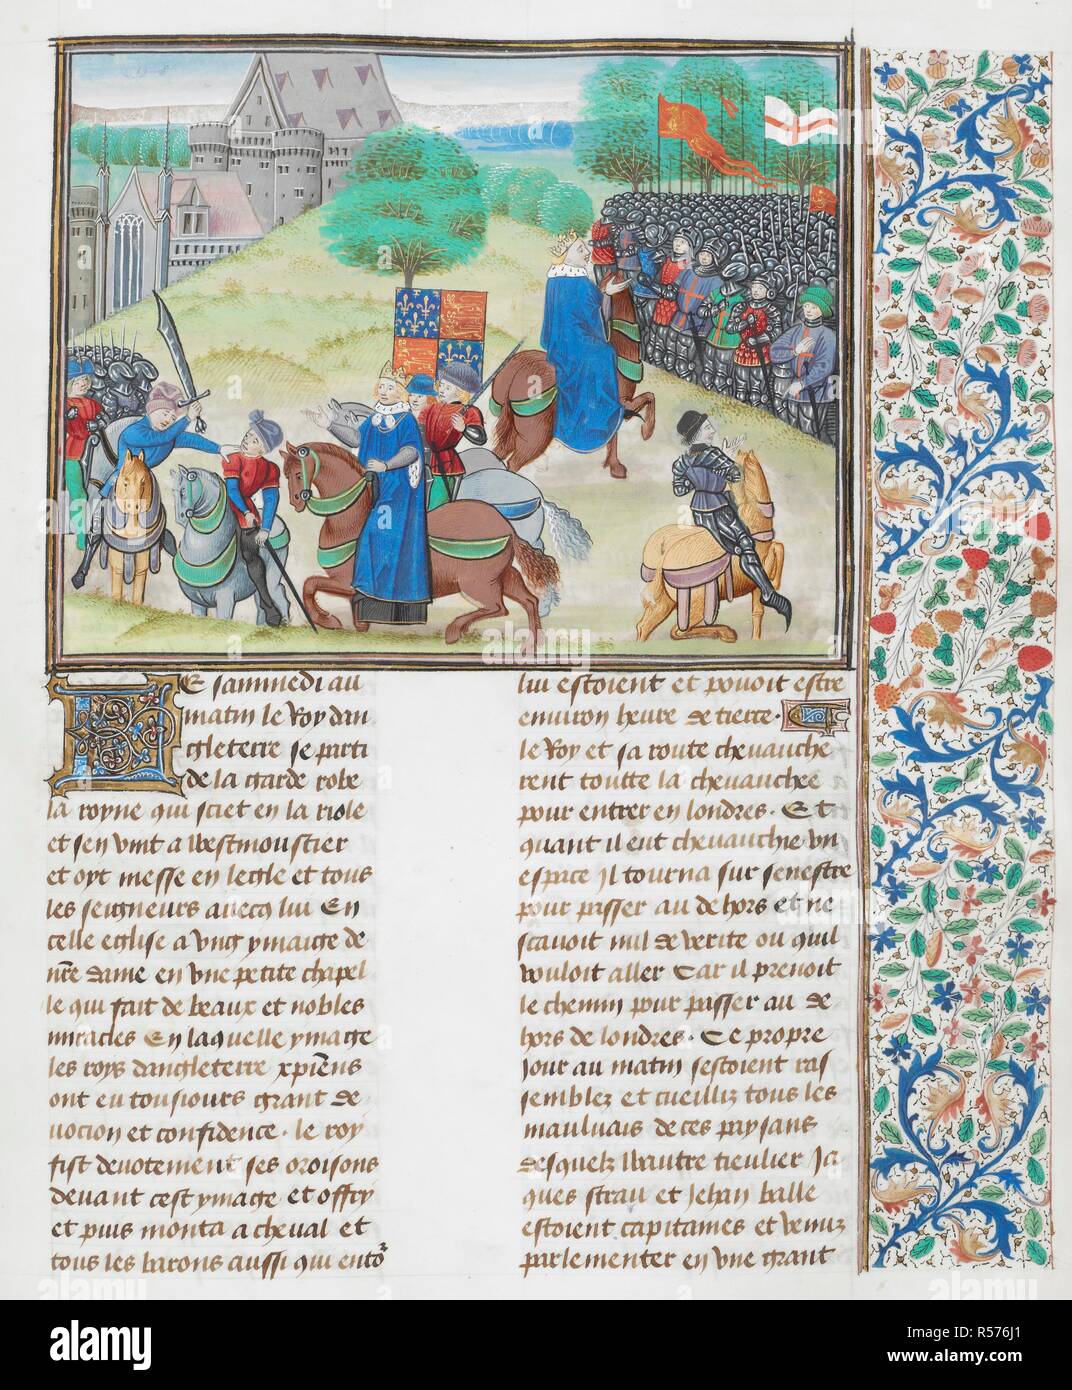 Le sammedi au
matin le Roy dan
gleterre se parti
de la garde robe
la royne qui sciet en la riole
et sen vint a westmoustier
et oyt messe en leglē et tous
les seigneurs avecq lui En
celle eglise a ung ymaige de
nr̄e dame en une petite chapel
le qui fait de beaux et nobles
miracles En laquelle ymage
les roys dangleterre xp̄iens
ont eu tousiours grant de
uocion et confidence. le roy
fist devotement ses oroisons
devant cest ymage et offry
et puis monta a cheval et
tous les barons aussi qui ento
lui estoient et povoit estre
environ heure de tierce.
le Roy et sa route chevauche
rent toutte la chevauchee
pour entrer en londres. Et
quant il eut chevauchie un
espace Il tourna sur senestre
pour passer au dehors et ne
scavoit nul de verite ou quil
vouloit aller Car il prenoit
le chemin pour passer au de
hors de londres. Ce propre
Jour au matin sestoient ras
semblez et cueilliz tous les
mauluais de ces paysans
desquelz wautre tieulier Ja
ques strau et Jehan balle
estoient capitaines et venuz
parlementer en une grant
alamy
Image ID: R576J1
www.alamy.com